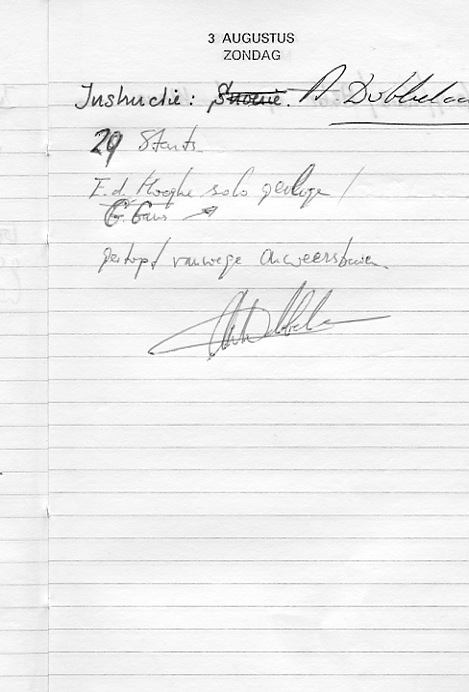 3 AUGUSTUS
ZONDAG
Instructie: A Dobbelaa
29 Starts
E.d. Hooghe solo gevloge /
G. Gans
gestopt vanwege onweersbuien.